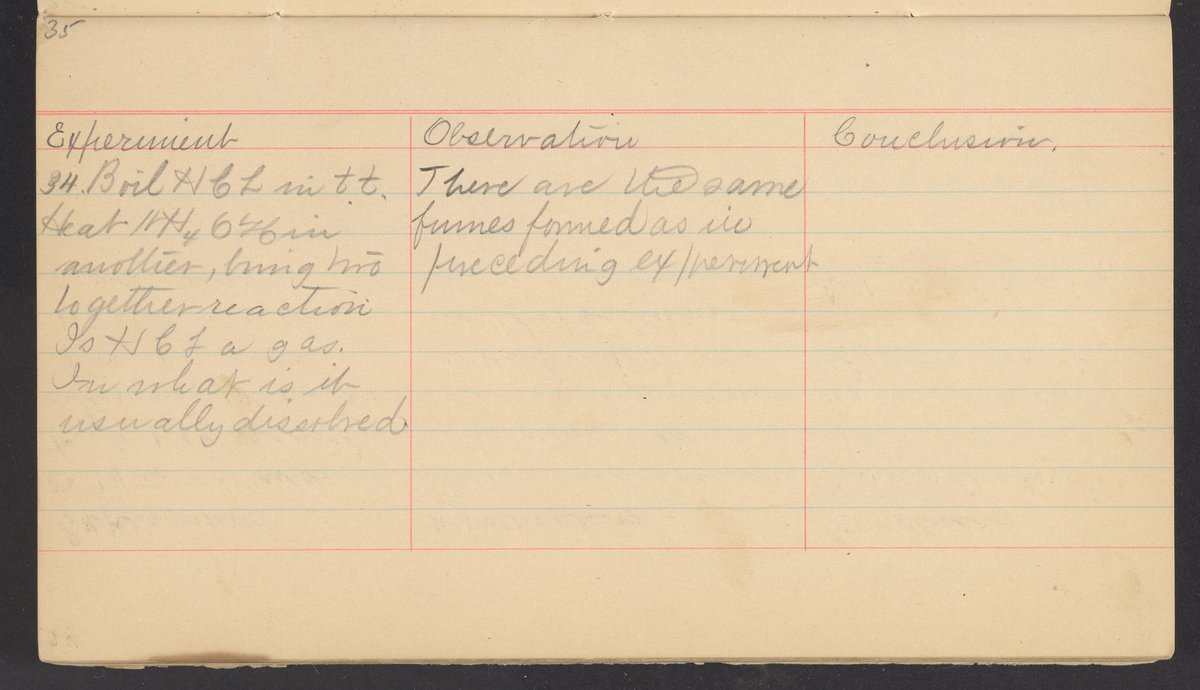 35
Experiment
34. Boil HCL in t t.
Heat NH4OH in
another, bring two
together reaction
Is HCL a gas.
In what is it
usually dissolved
Observation
There are the same
fumes formed as in
preceding experiment
Conclusion.